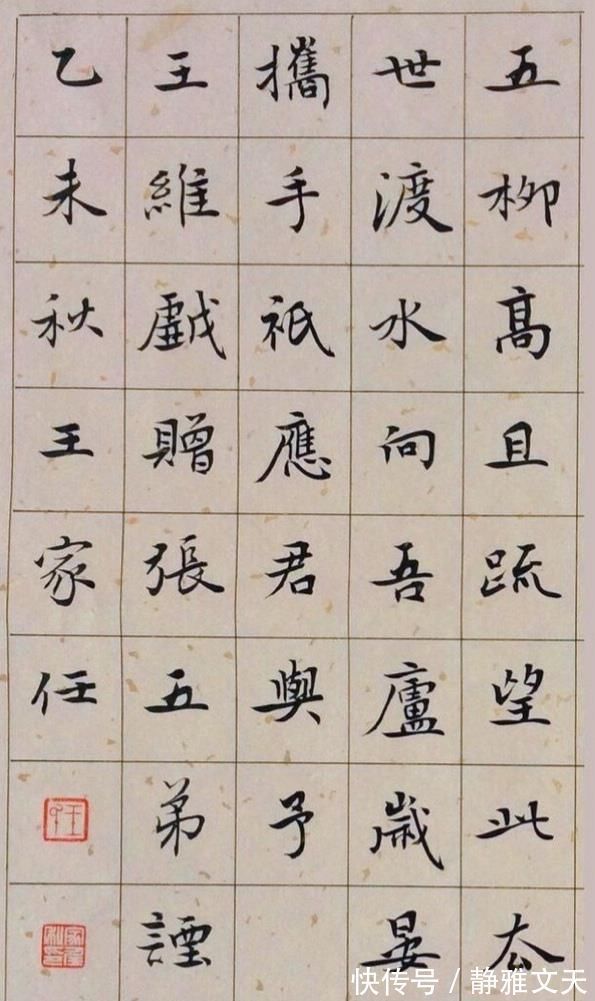 五柳高且疏望此去
世渡水向吾廬歲晏
攜手祇應君與予
王維戲贈張五弟諲
乙未秋王家任
快传号 / 静雅文天